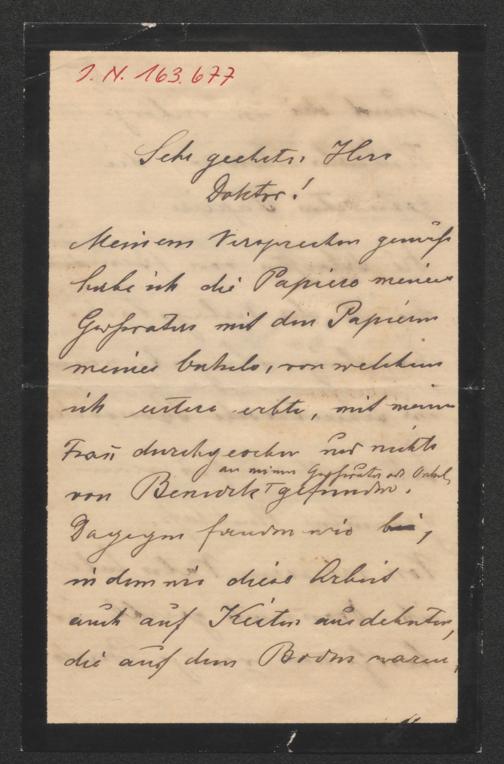 J. N. 163.677
Sehr geehrter Herr
Doktor!
Meinem Versprechen gemäß
habe ich die Papiere meines
Großvaters mit den Papieren
meines Onkels, von welchem
ich erstere erbte, mit meiner
Frau durchgesehen und nichts
an meinen Großvater od. Onkel
von gefunden.
Dagegen fanden wir bei,
indem wir diese Arbeit
auch auf Kisten ausdehnten,
die auf dem Boden waren,